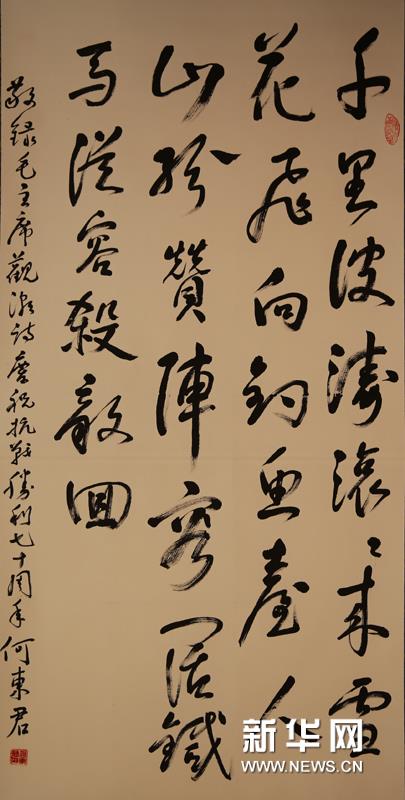 千里波濤滚〻来雪
花飛向釣魚臺人
山紛贊陣容闊鐵
馬從容殺敵囬
敬録毛主席觀潮詩慶祝抗戰勝利七十周年 何東君
新华网
WWW.NEWS.CN